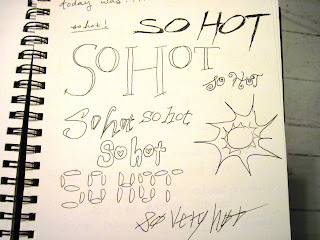 today was....
so hot!
SO HOT
SO HOT
SO HOT
So hot so hot
so hot
SO HOT
so very hot